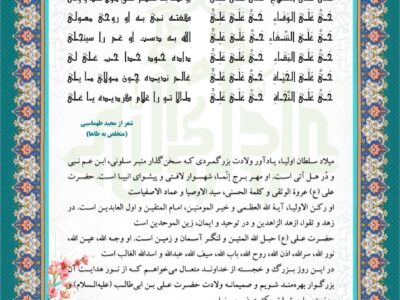 حَیَّ عَلَی الوَفاء حَیَّ عَلَی عَلیٌّ گفته نبی به او روحی معولی
حَیَّ عَلَی الشَّفاء حَیَّ عَلَی عَلیٌّ الله به دست او غم را سینجلی
حَیَّ عَلَی البَقاء حَیَّ عَلَی عَلیٌّ داده خود خدا حب علی لی
حَیَّ عَلَی الحَیاة حَیَّ عَلَی عَلیٌّ عالم ندیده چون مولای ما یلی
حَیَّ عَلَی النَّجاة حَیَّ عَلَی عَلیٌّ طالا تو را غلام گردیده یا علی
شعر از مجید طهماسبی
(متخلص به طاها)
میلاد سلطان اولیا، یادآور ولادت بزرگمردی که سخن‌گذار منبر سلونی، ابن عم نبی
و دُر هل أتی است. او مهر برج إنّما، شهسوار لافتی و پیشوای اتبیا است. حضرت
علی (ع) عروة الوثقی و کلمة الحسنی، سید الاوصیا و عماد الاصفیاست
او رکن الاولیاء، آیة الله العظمی و خیر المومنین، امام المتقین و اول العابدین است. در
زهد و تقوا، ازهد الزاهدین و در توحید و ایمان، زین الموحدین است
حضرت علی (ع) حبل الله المتین و لنگر آسمان و زمین است. او وجه الله، عین الله،
نور الله، سر الله، اذن الله، روح الله، باب الله، سیف الله، عبدالله و اسدالله الغالب است
در این روز بزرگ و خجسته از خداوند متعال می‌خواهم که از نور هدایت آن
بزرگوار بهره‌مند شویم و صمیمانه ولادت حضرت علی بن ابی‌طالب (علیه‌السلام) و